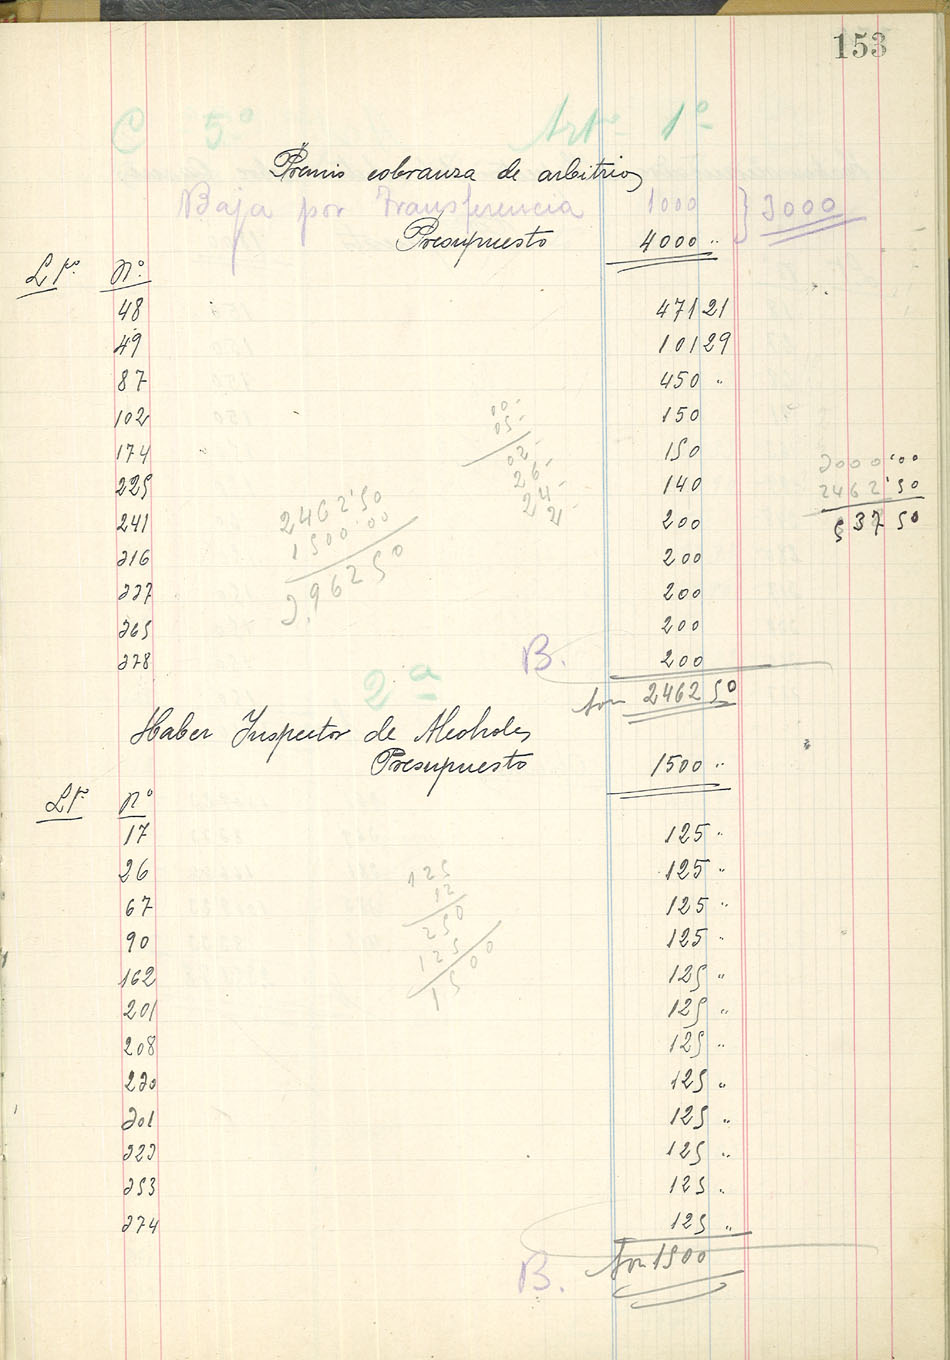 153
C 5º Artº 1º
Premio cobranza de arbitrios
Baja por Transferencia 1000 } 3000
Presupuesto 4000 "
Lº Nº
48 471 21
49 101 29
87 450 "
102 150
174 150
225 140
241 200
316 200
337 200
365 200
378 200
B.
son 2462 50
00-
05-
02-
26-
24-
21-
2462'50
1500'00
3.962 50
3000'00
2462'50
537 50
2ª
Haber Inspector de Alcoholes
Presupuesto 1500 "
Nº
17 125 "
26 125 "
67 125 "
90 125 "
162 125 "
201 125 "
208 125 "
230 125 "
301 125 "
323 125 "
353 125 "
374 125 "
B. son 1500
125
12
250
125
1500